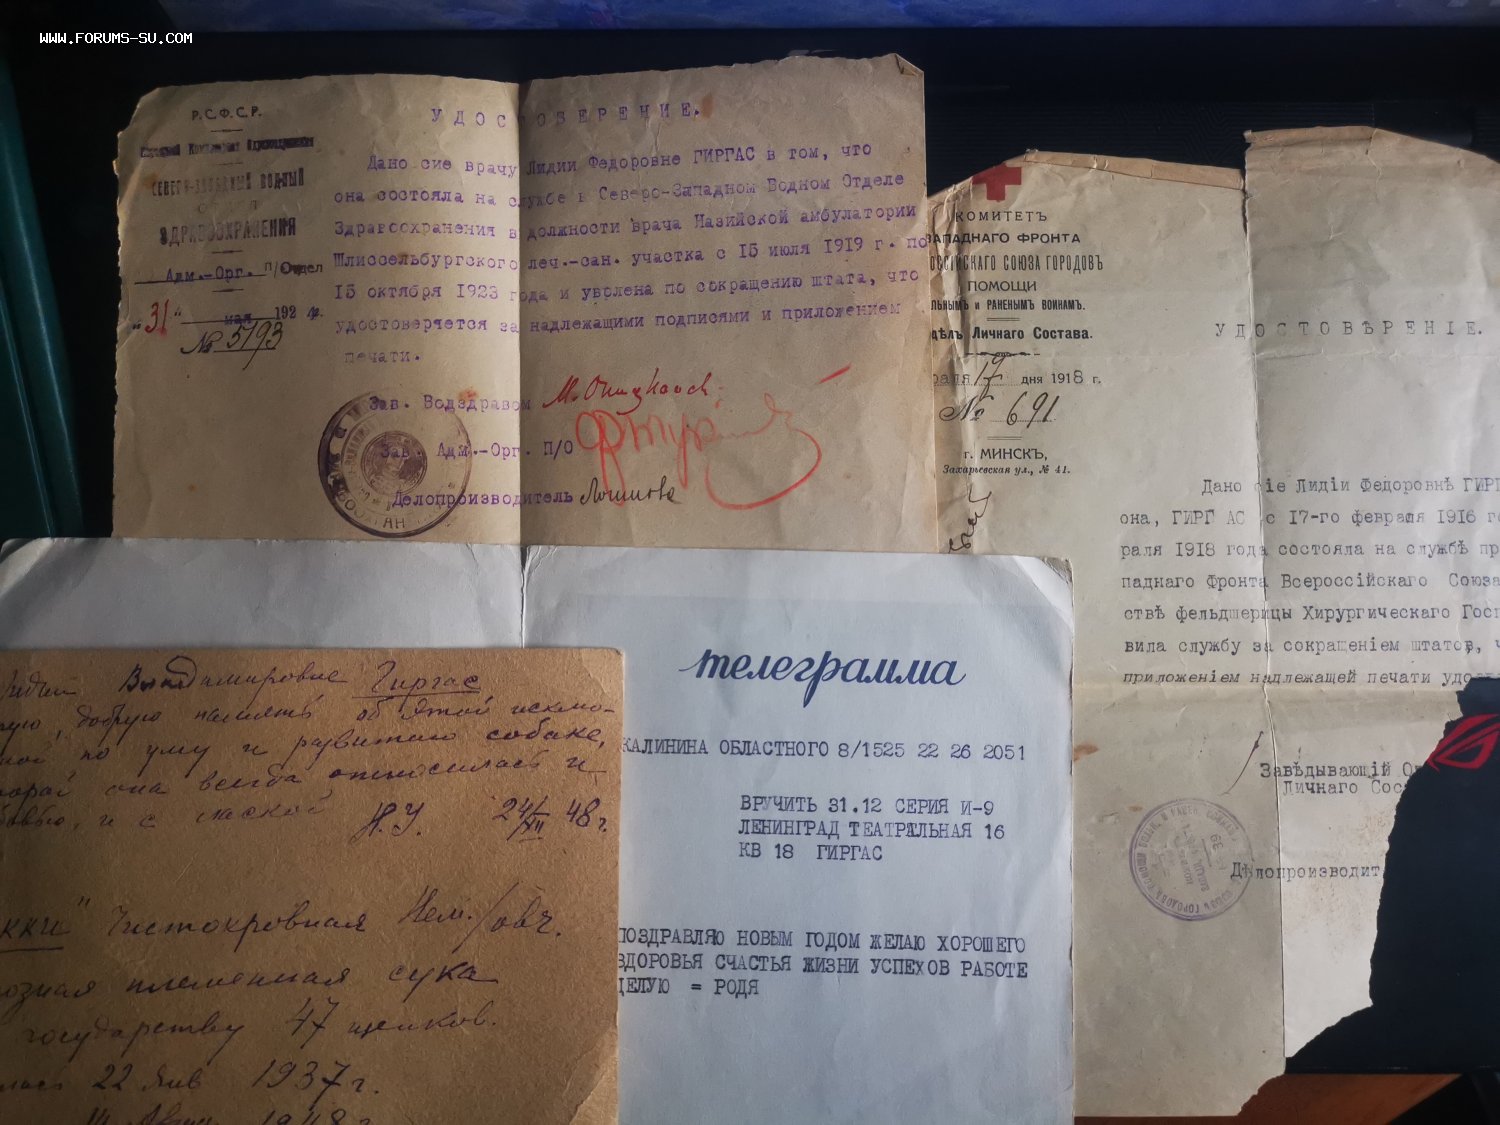 WWW.FORUMS-SU.COM
Р.С.Ф.С.Р.
СЕВЕРО-ЗАПАДНЫЙ ВОДНЫЙ
ОТДЕЛ
ЗДРАВООХРАНЕНИЯ
Адм.-Орг. п/Отдел
"31" мая 1924 г.
№ 5793
УДОСТОВЕРЕНИЕ.
Дано сие врачу Лидии Федоровне ГИРГАС в том, что
она состояла на службе в Северо-Западном Водном Отделе
Здравоохранения в должности врача Назийской амбулатории
Шлиссельбургского леч.-сан. участка с 15 июля 1919 г. по
15 октября 1923 года и уволена по сокращению штата, что
удостоверяется за надлежащими подписями и приложением
печати.
Зав. Водздравом
Зав. Адм.-Орг. П/О
Делопроизводитель
КОМИТЕТЪ
ЗАПАДНАГО ФРОНТА
ОССІЙСКАГО СОЮЗА ГОРОДОВЪ
ПОМОЩИ
ЛЬНЫМЪ и РАНЕНЫМЪ ВОИНАМЪ.
дѣлъ Личнаго Состава.
раля 17 дня 1918 г.
№ 691
г. МИНСКЪ,
Захарьевская ул., № 41.
УДОСТОВѢРЕНІЕ.
Дано сіе Лидіи Федоровнѣ ГИРГ
она, ГИРГАС с 17-го февраля 1916 го
раля 1918 года состояла на службѣ пр
паднаго Фронта Всероссійскаго Союза
ствѣ фельдшерицы Хирургическаго Госп
вила службу за сокращеніем штатов, ч
приложеніем надлежащей печати удос
Завѣдывающій От
Личнаго Сос
Дѣлопроизводит
телеграмма
КАЛИНИНА ОБЛАСТНОГО 8/1525 22 26 2051
ВРУЧИТЬ 31.12 СЕРИЯ И-9
ЛЕНИНГРАД ТЕАТРАЛЬНАЯ 16
КВ 18 ГИРГАС
ПОЗДРАВЛЯЮ НОВЫМ ГОДОМ ЖЕЛАЮ ХОРОШЕГО
ЗДОРОВЬЯ СЧАСТЬЯ ЖИЗНИ УСПЕХОВ РАБОТЕ
ЦЕЛУЮ = РОДЯ
Владимировне Гиргас
ую, добрую память об этой исклю-
ной по уму и развитию собаке,
торой она всегда относилась и
бовью, и с лаской
Н.У. 24/XII 48 г.
кки" Чистокровная Нем./овч.
племенная сука
государству 47 щенков.
лась 22 Янв 1937 г.
14 Авг 1948 г.